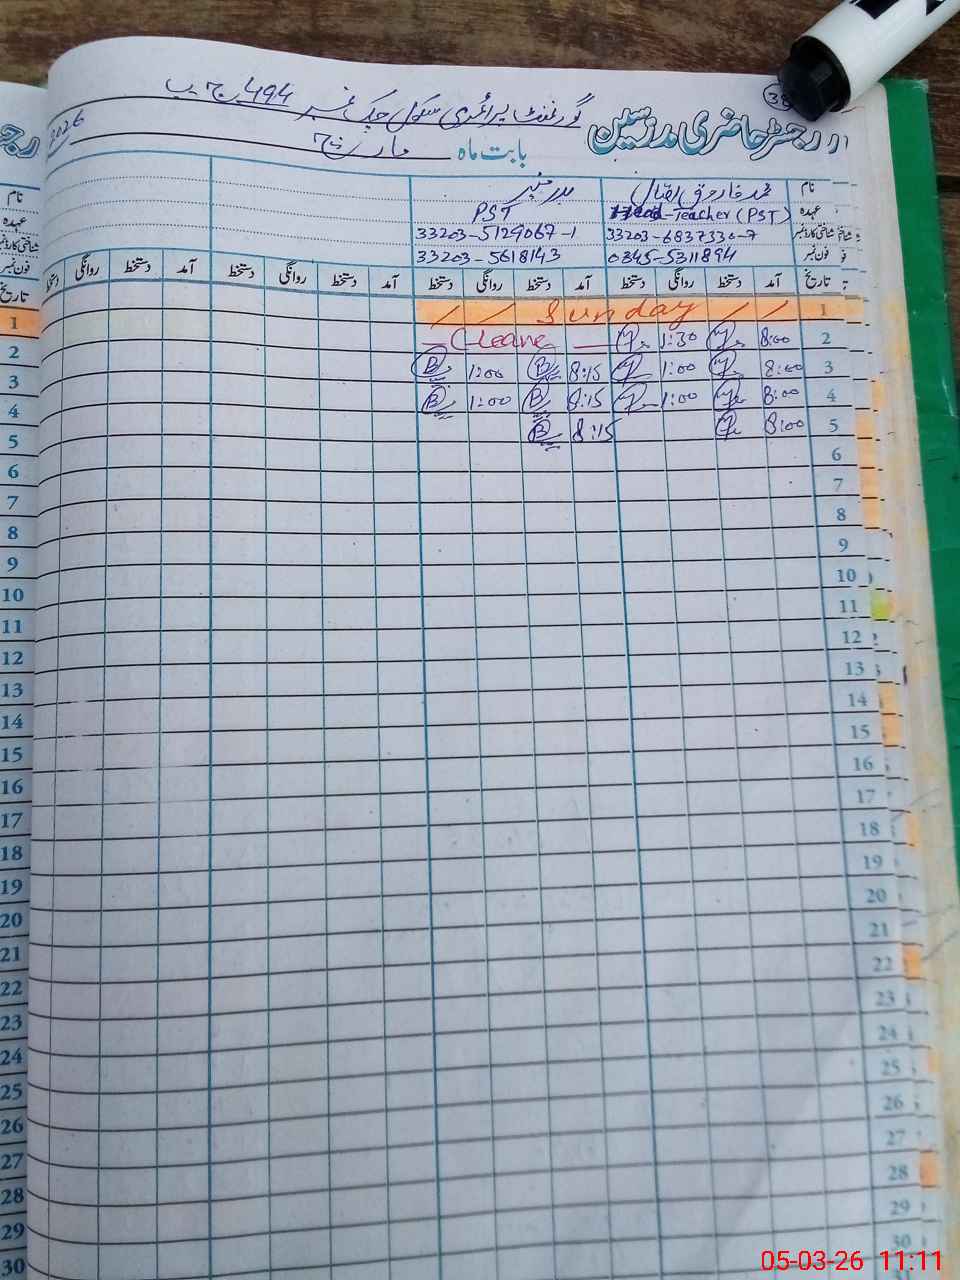 38
رجسٹر حاضری مدرسین
گورنمنٹ پرائمری سکول چک نمبر 494 ج ب
بابت ماہ مارچ 2026
نام محمد فاروق
عہدہ Head-Teacher (PST) PST
شناختی کارڈ نمبر 33203-6837330-7 33203-5129067-1
فون نمبر 0345-5311894 33203-5618143
تاریخ آمد دستخط روانگی دستخط آمد دستخط روانگی دستخط آمد دستخط روانگی دستخط آمد دستخط روانگی دستخط تاریخ
1 / / Sunday / / 1
2 8:00 1:30 — Cleane — 2
3 8:00 1:00 8:15 B 1:00 B 3
4 8:00 1:00 8:15 B 1:00 B 4
5 8:00 8:15 B 5
6 6
7 7
8 8
9 9
10 10
11 11
12 12
13 13
14 14
15 15
16 16
17 17
18 18
19 19
20 20
21 21
22 22
23 23
24 24
25 25
26 26
27 27
28 28
29 29
30 30
05-03-26 11:11